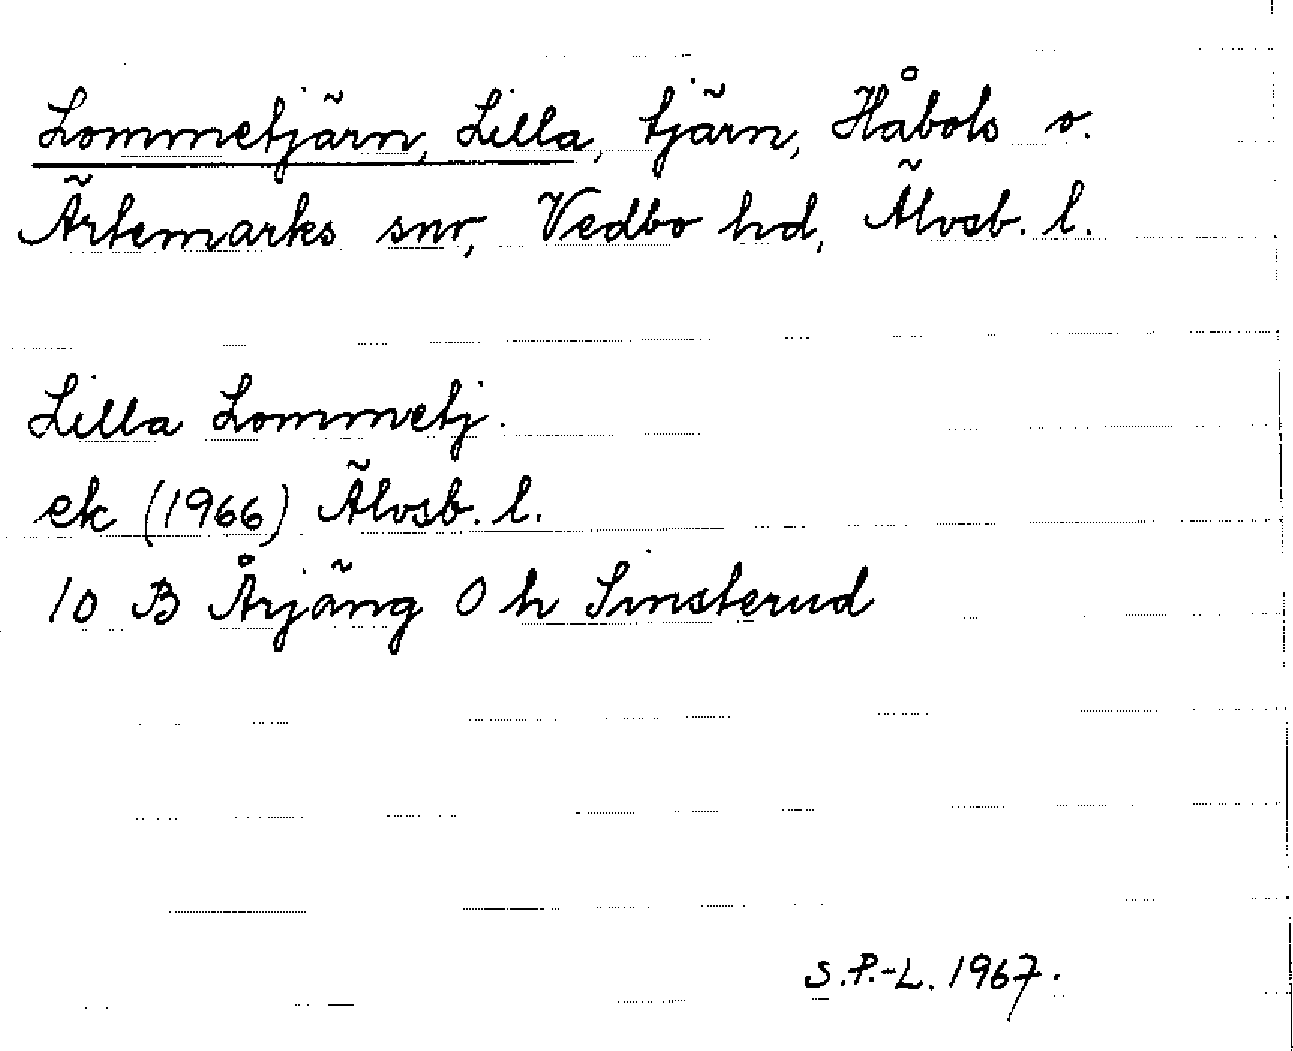 Lommetjärn, Lilla, tjärn, Håbols o.
Ärtemarks snr, Vedbo hd, Älvsb. l.
Lilla Lommetj.
ek (1966) Älvsb. l.
10 B Årjäng 0 h Sinsterud
S.P.-L. 1967.